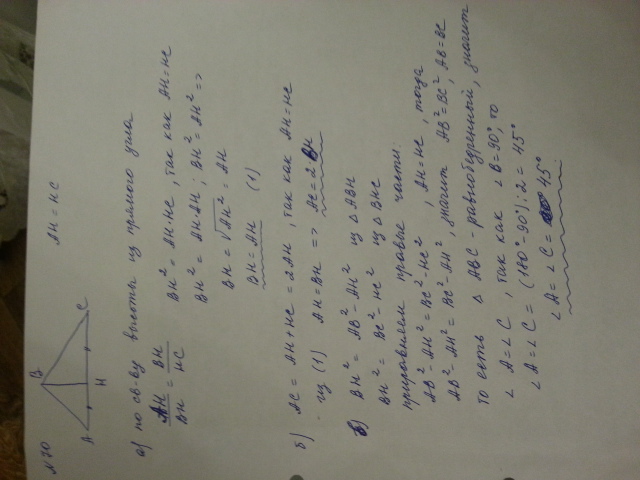 № 70
B
AH = HC
A
H
C
а) по св-ву высоты из прямого угла
AH/BH = BH/HC
BH² = AH·HC, так как AH = HC
BH² = AH·AH; BH² = AH² =>
BH = √AH² = AH
BH = AH (1)
б) AC = AH + HC = 2AH, так как AH = HC
из (1) AH = BH => AC = 2BH
в) BH² = AB² - AH² из △ABH
BH² = BC² - HC² из △BHC
приравняем правые части:
AB² - AH² = BC² - HC², AH = HC, тогда
AB² - AH² = BC² - AH², значит AB² = BC², AB = BC
то есть △ABC - равнобедренный, значит
∠A = ∠C, так как ∠B = 90°, то
∠A = ∠C = (180° - 90°):2 = 45°
∠A = ∠C = 45°